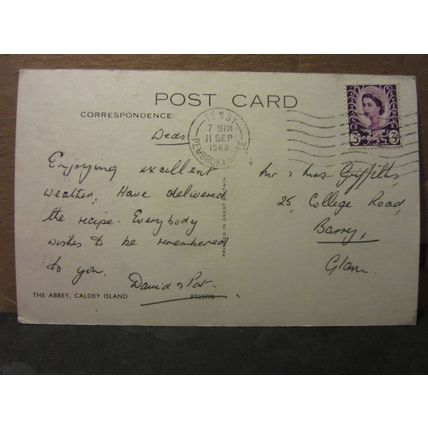 POST CARD
CORRESPONDENCE
TENBY
7 30PM
11 SEP
1968
PEMBROKESHIRE
3D
Enjoying excellent
weather, Have delivered
the recipe. Everybody
wishes to be remembered
to you.
David & Pat.
Mr & Mrs Griffiths
25, College Road,
Barry,
Glam
PRINTED IN GREAT BRITAIN
THE ABBEY, CALDEY ISLAND